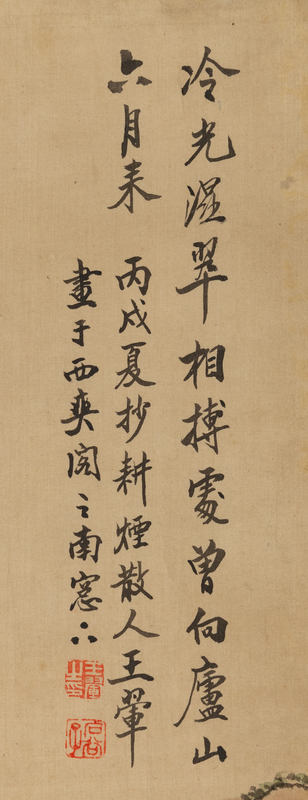 冷光湿翠相搏處曾向廬山
六月来 丙戌夏抄耕煙散人王翬
畫于西爽閣之南窓下
王翬之印
石谷子